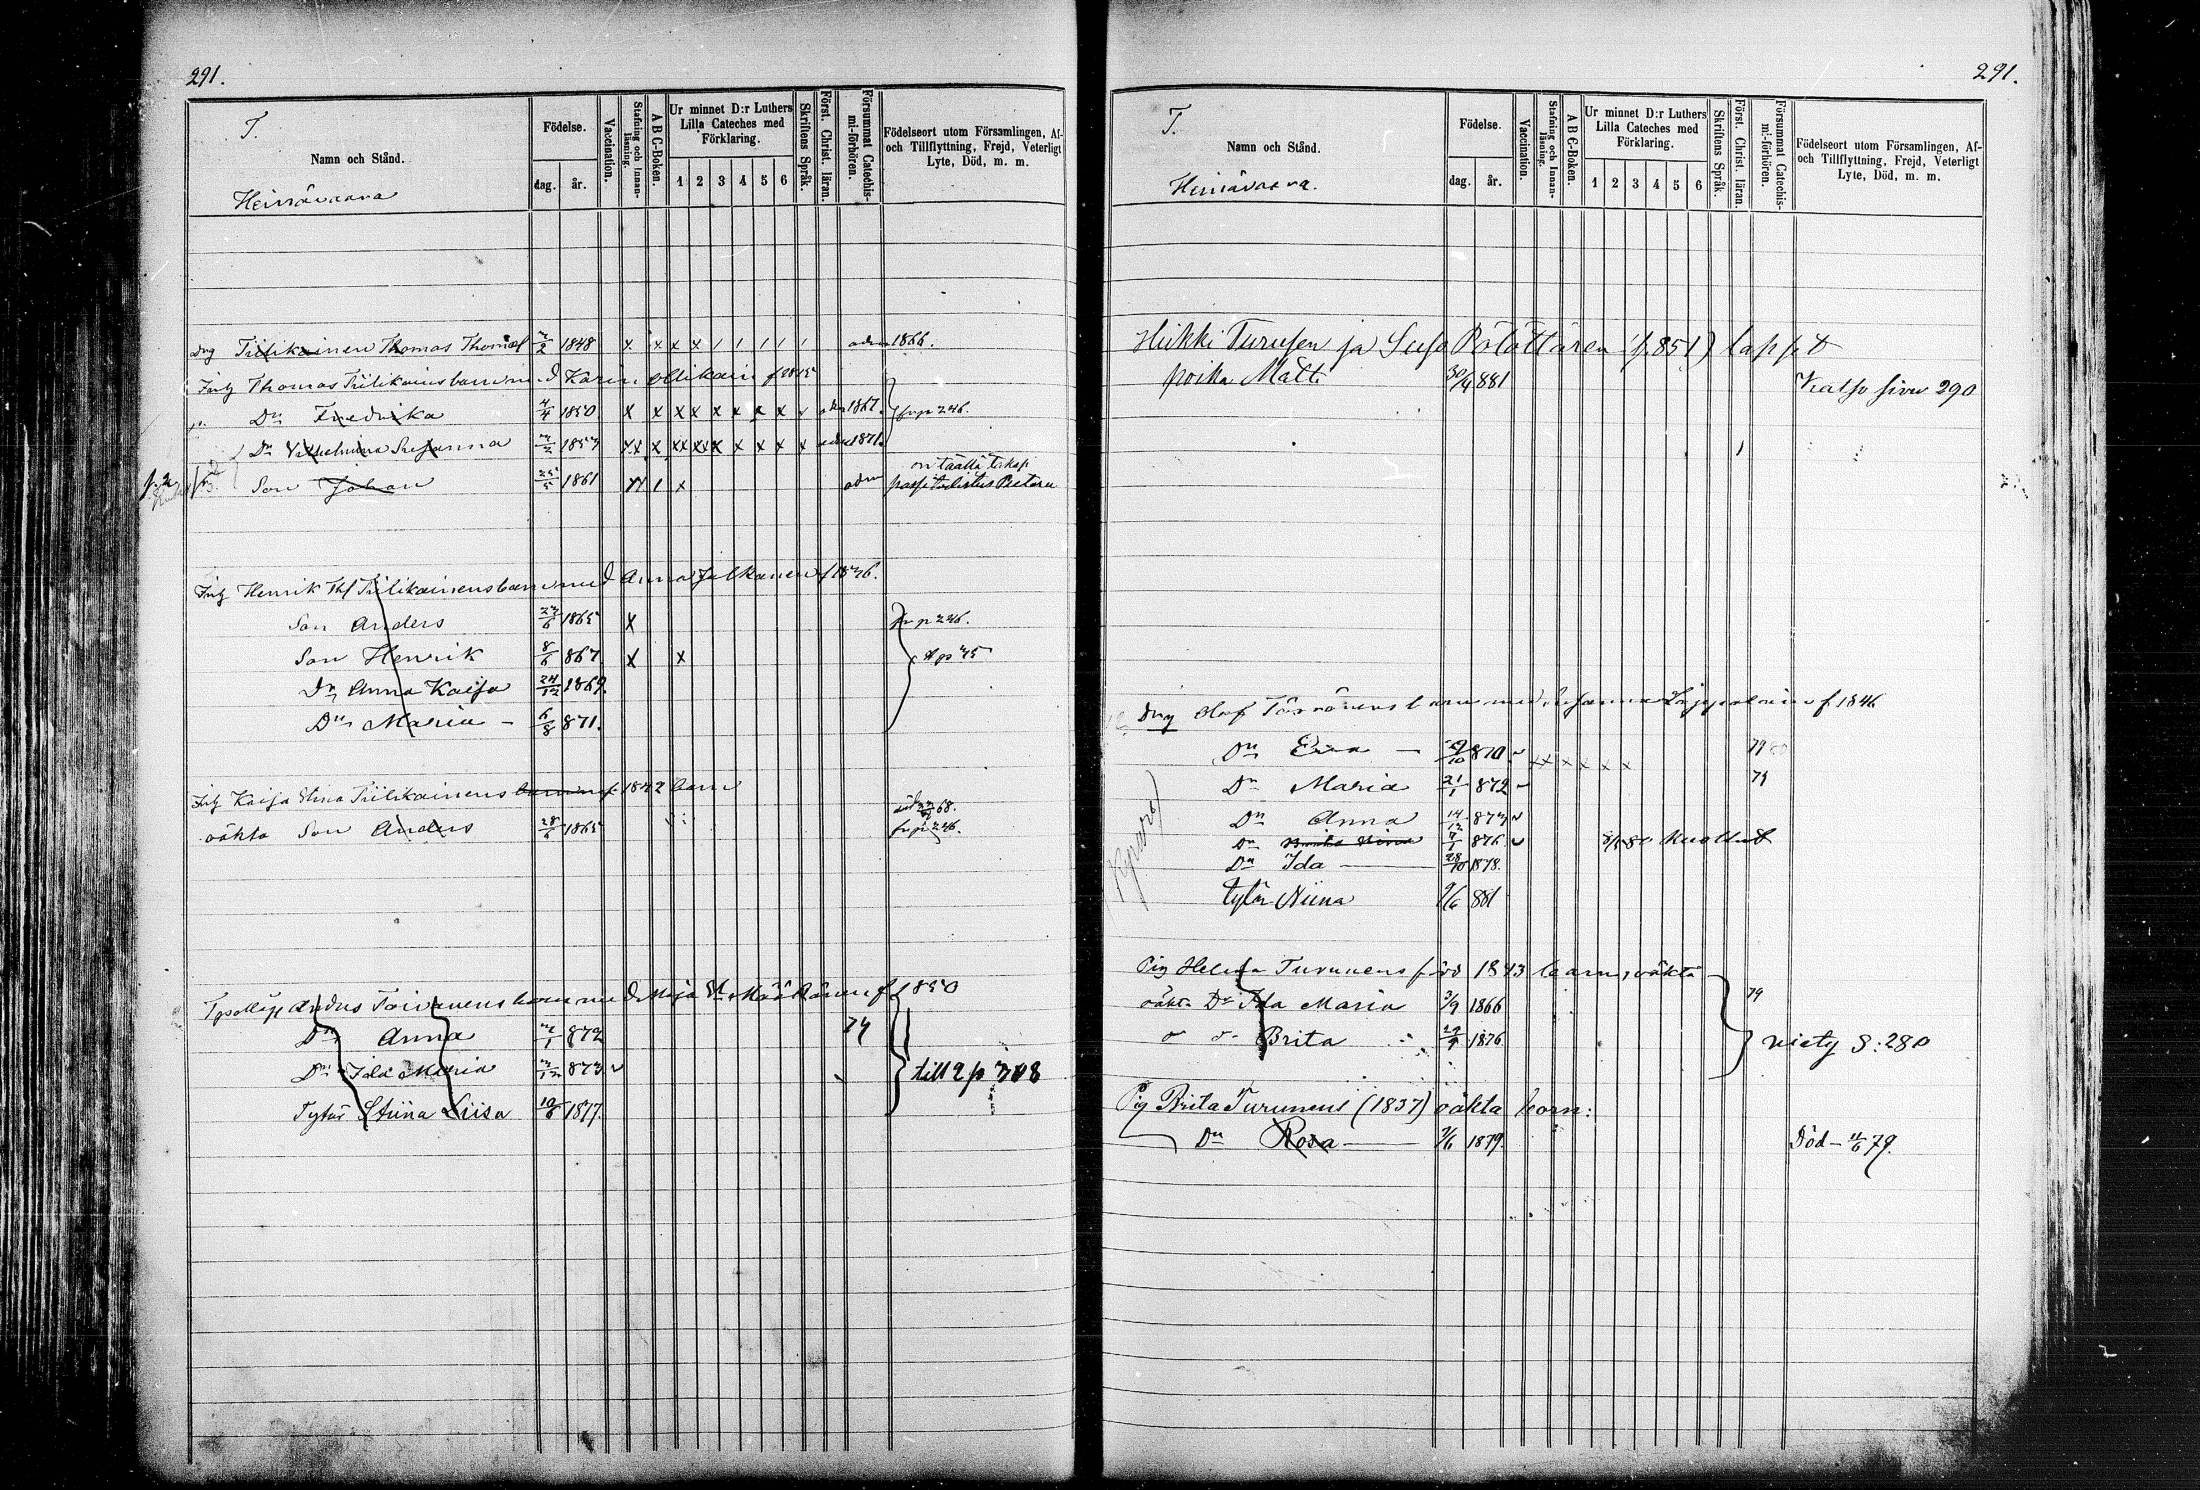 291.
T.
Namn och Stånd.
Heinävaara
Födelse.
dag. år.
Vaccination.
Stafning och Innanläsning.
A B C-Boken.
Ur minnet D:r Luthers Lilla Cateches med Förklaring.
1 2 3 4 5 6
Skriftens Språk.
Först. Christ. läran.
Försummat Catechismi-förhören.
Födelseort utom Församlingen, Af- och Tillflyttning, Frejd, Veterligt Lyte, Död, m. m.
Drg Tiilikainen Thomas Thomasf 2/2 1848 x x x x / / / / / adm 1866.
Inh Thomas Tiilikainens barn med Karin Ollikain f 1815
Dr Fredrika 4/4 1850 x x x x x x x x adm 1867. fr p 246.
Dr Vilhelmina Susanna 1857 xx x xx xx x x x x x adm 1871.
Son Johan 25/5 1861 x adm on täällä takasi
Inh Henrik Thf Tiilikainens barn med Anna Jalkanen f 1836.
Son Anders 27/6 1865 x fr p 246.
Son Henrik 8/6 867. x x
Dr Anna Kaisa 24/12 1869.
Dr Maria – 6/8 871.
Inh Kaisa Stina Tiilikainens 1842 barn
oäkta Son Anders 28/6 1865 död 68. fr p 246.
Anders Toivanens barn med Maja St. Määttänen f 1850
Dr Anna 1/1 872 79
Dr Ida Maria 873 till 2 p 708
Tytär Stiina Liisa 10/8 1877.
291.
T.
Namn och Stånd.
Heinävaara.
Födelse.
dag. år.
Vaccination.
Stafning och Innanläsning.
A B C-Boken.
Ur minnet D:r Luthers Lilla Cateches med Förklaring.
1 2 3 4 5 6
Skriftens Språk.
Först. Christ. läran.
Försummat Catechismi-förhören.
Födelseort utom Församlingen, Af- och Tillflyttning, Frejd, Veterligt Lyte, Död, m. m.
Heikki Turusen ja Susa Pölöttären (s. 851) lapset
poika Matti 30/4 881 Katso sivu 290
Drg Olof Törrönens barn med Susanna f 1846
Dr Eva – 10 870 xx x x x x 79
Dr Maria 21/1 872 79
Dr Anna 14/12 873
Dr 7/1 876 80 kuollut
Dr Ida 28/10 1878.
tytär Niina 9/6 881
Pig Helena Turunens född 1843 barn, oäkta
oäkta Dr Ida Maria 3/9 1866 79
o o Brita 1876. viety S: 280
Pig Brita Turunens (1837) oäkta barn:
Dr Rosa 9/6 1879. Död – 11/6 79.